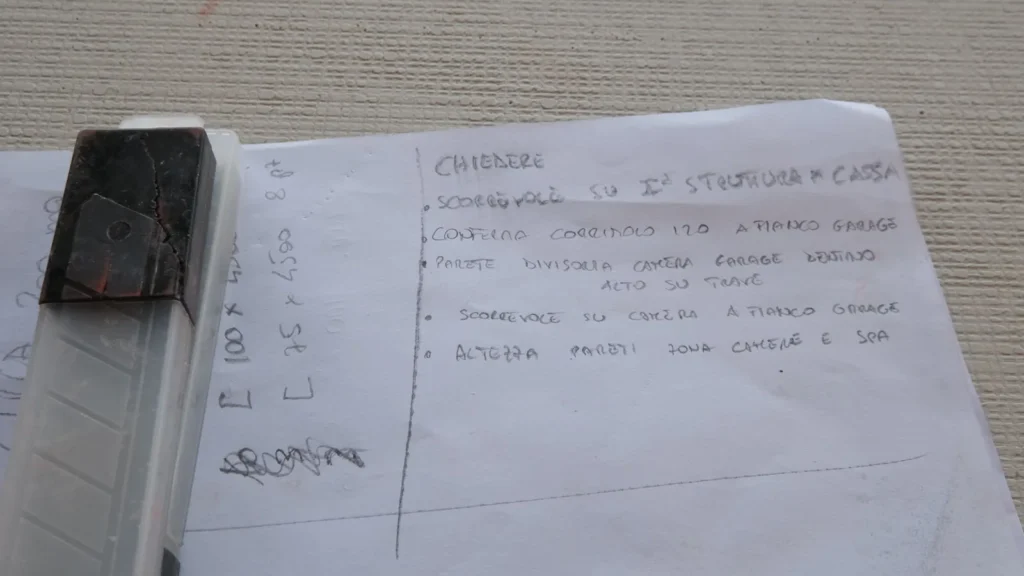 CHIEDERE
• SCORREVOLE SU Iª STRUTTURA A CASSA
• CONFERMA CORRIDOIO 120 A FIANCO GARAGE
• PARETE DIVISORIA CAMERA GARAGE
ALTO SU TRAVE
• SCORREVOLE SU CAMERA A FIANCO GARAGE
• ALTEZZA PARETI ZONA CAMERE E SPA
[ 100 x
[ 75 x